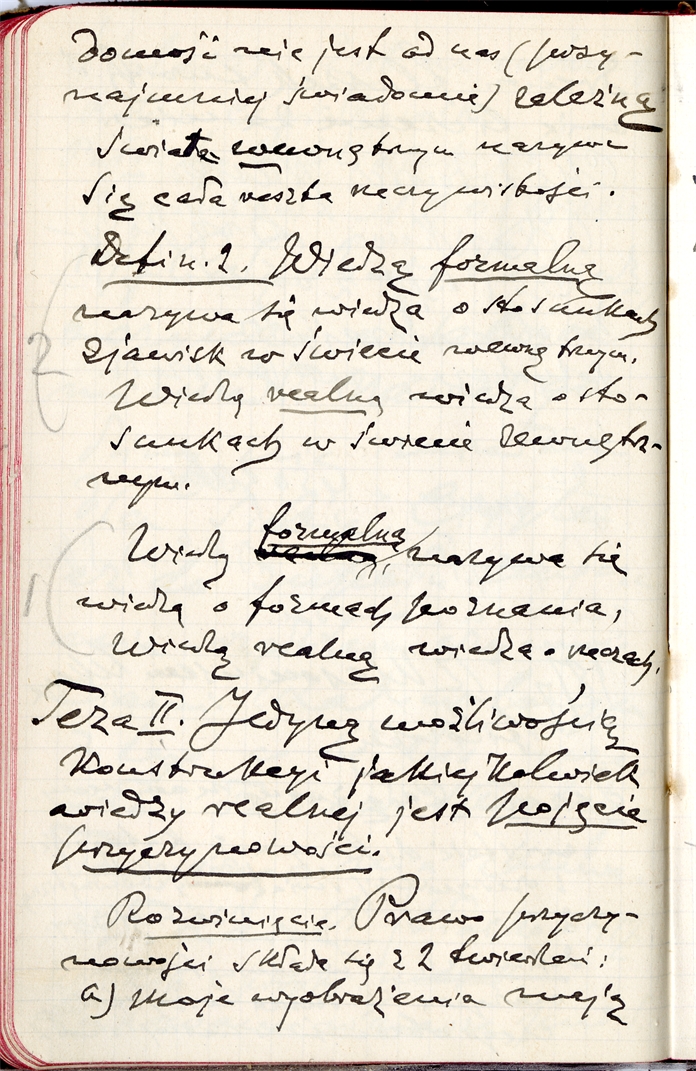 domość nie jest od nas (przy-
najmniej świadomie) zależną
Światem zewnętrznym nazywa
się cała reszta rzeczywistości.
Defin. 2. Wiedzą formalną
nazywa się wiedza o stosunkach
zjawisk w świecie wewnętrznym.
2
Wiedzą realną wiedza o sto-
sunkach w świecie zewnętrz-
nym.
Wiedzą formalną nazywa się
1
wiedza o formach poznania,
Wiedzą realną wiedza o rzeczach.
Teza II. Jedyną możliwością
Konstrukcyi jakiejkolwiek
wiedzy realnej jest pojęcie
przyczynowości.
Rozwinięcie. Prawo przyczy-
nowości składa się z 2 twierdzeń:
a) moje wyobrażenia mają